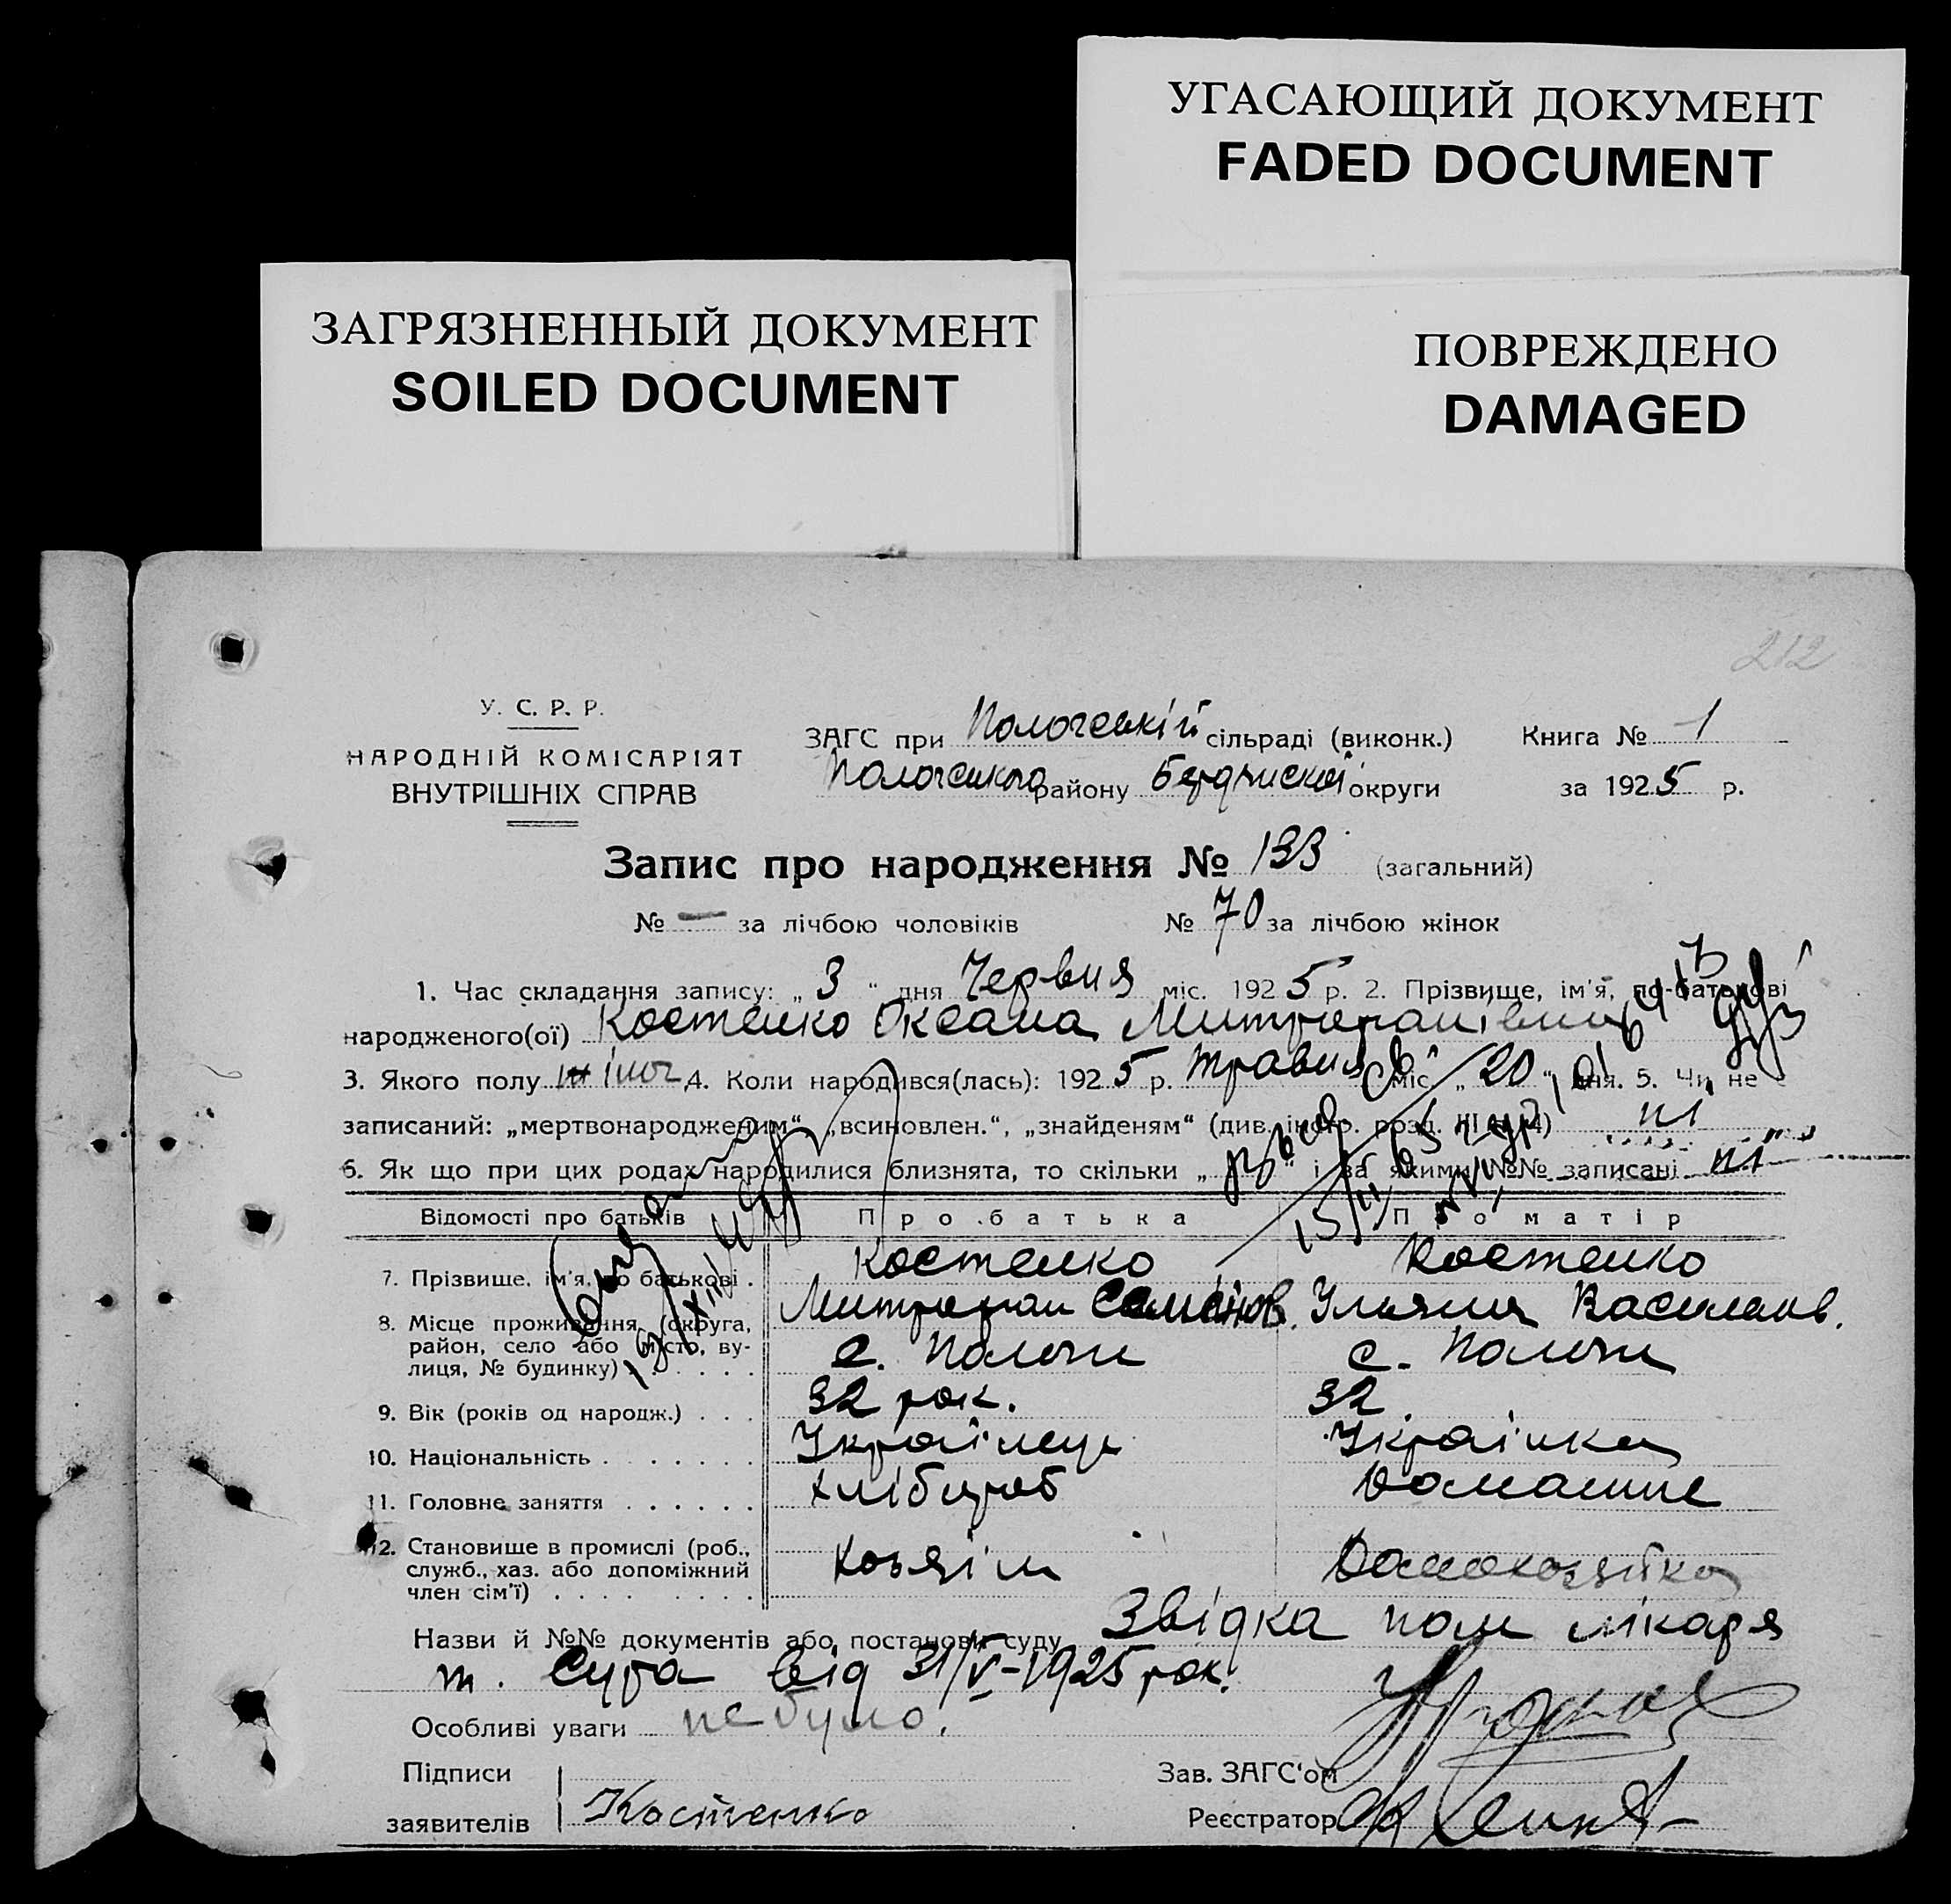 УГАСАЮЩИЙ ДОКУМЕНТ
FADED DOCUMENT
ЗАГРЯЗНЕННЫЙ ДОКУМЕНТ
SOILED DOCUMENT
ПОВРЕЖДЕНО
DAMAGED
212
У. С. Р. Р.
НАРОДНІЙ КОМІСАРІЯТ
ВНУТРІШНІХ СПРАВ
ЗАГС при Пологській сільраді (виконк.) Книга № 1
Пологського району Бердянської округи за 1925 р.
Запис про народження № 133 (загальний)
№ — за лічбою чоловіків № 70 за лічбою жінок
1. Час складання запису: „ 3 “ дня Червня міс. 1925 р. 2. Прізвище, ім'я, по-батькові
народженого(ої) Костенко Оксана Митрофанівна
3. Якого полу жіноч. 4. Коли народився(лась): 1925 р. травня міс. „ 20 “ дня. 5. Чи не є
записаний: „мертвонародженим“, „всиновлен.“, „знайденям“ (див. інстр. розд. III арт. ) ні
6. Як що при цих родах народилися близнята, то скільки „ “ і за якими №№ записані ні
Відомості про батьків Про батька Про матір
7. Прізвище, ім'я, по батькові . Костенко Костенко
Митрофан Семенов. Ульяна Василивн.
8. Місце проживання (округа, район, село або місто, вулиця, № будинку) с. Пологи с. Пологи
9. Вік (років од народж.) . . . 32 рок. 32.
10. Національність . . . . . . . Українець Українка
11. Головне заняття . . . . . . хлібороб домашнє
12. Становище в промислі (роб., служб., хаз. або допоміжний член сім'ї) . . . . Хозяїн Домохозяйка
Назви й №№ документів або постанови суду Звідка пол. лікаря
т. від 31/V-1925 рок.
Особливі уваги не було.
Підписи
заявителів Костенко
Зав. ЗАГС'ом
Реєстратор